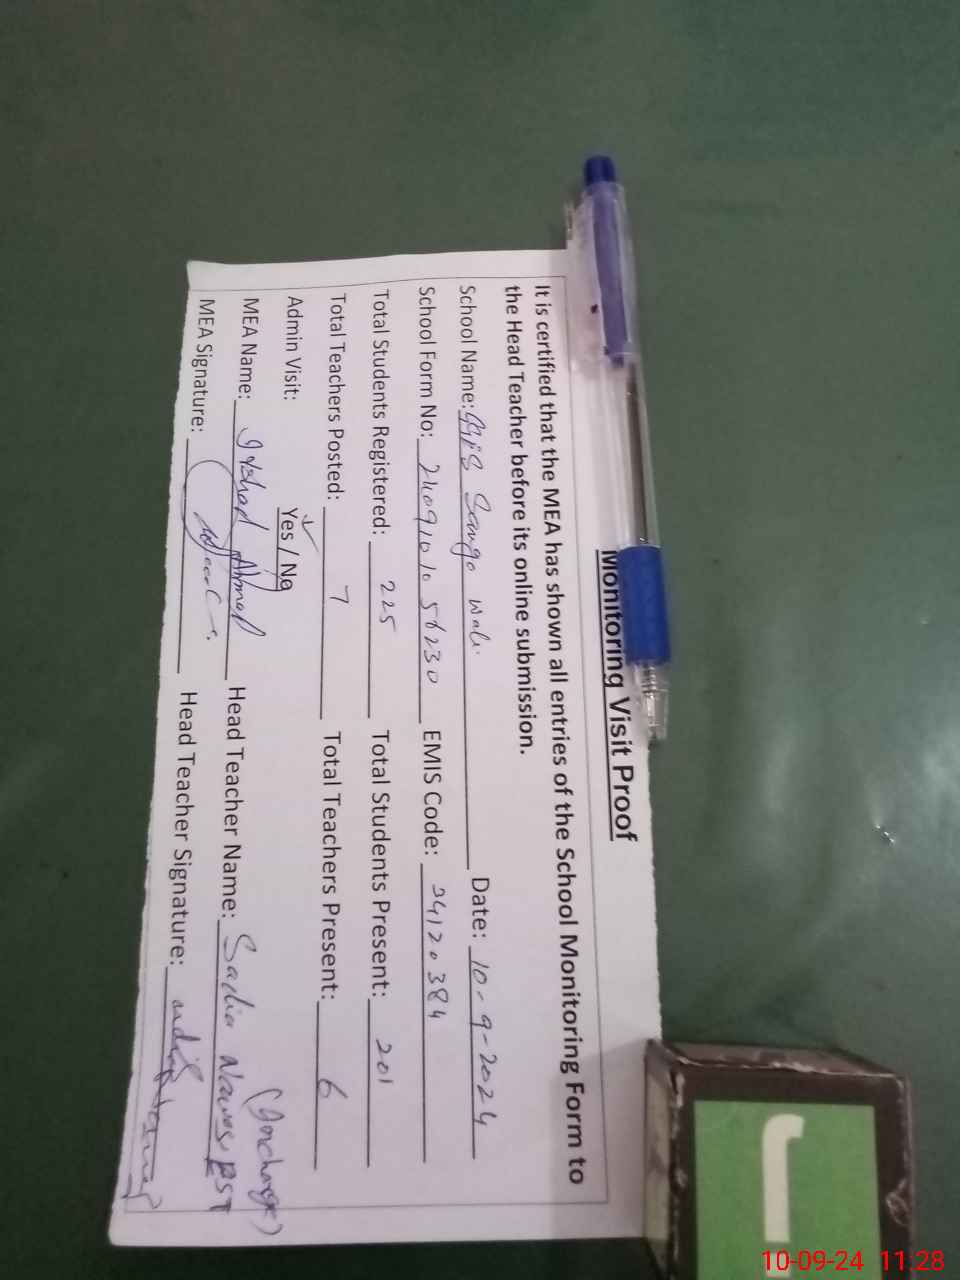 Monitoring Visit Proof
It is certified that the MEA has shown all entries of the School Monitoring Form to
the Head Teacher before its online submission.
School Name: GGPS Sango Wali Date: 10-9-2024
School Form No: 2409101056230 EMIS Code: 34120384
Total Students Registered: 225 Total Students Present: 201
Total Teachers Posted: 7 Total Teachers Present: 6
Admin Visit: Yes / No
(Incharge)
MEA Name: Ahmed Head Teacher Name: Sadia Nawas PST
MEA Signature: Head Teacher Signature:
10-09-24 11:28